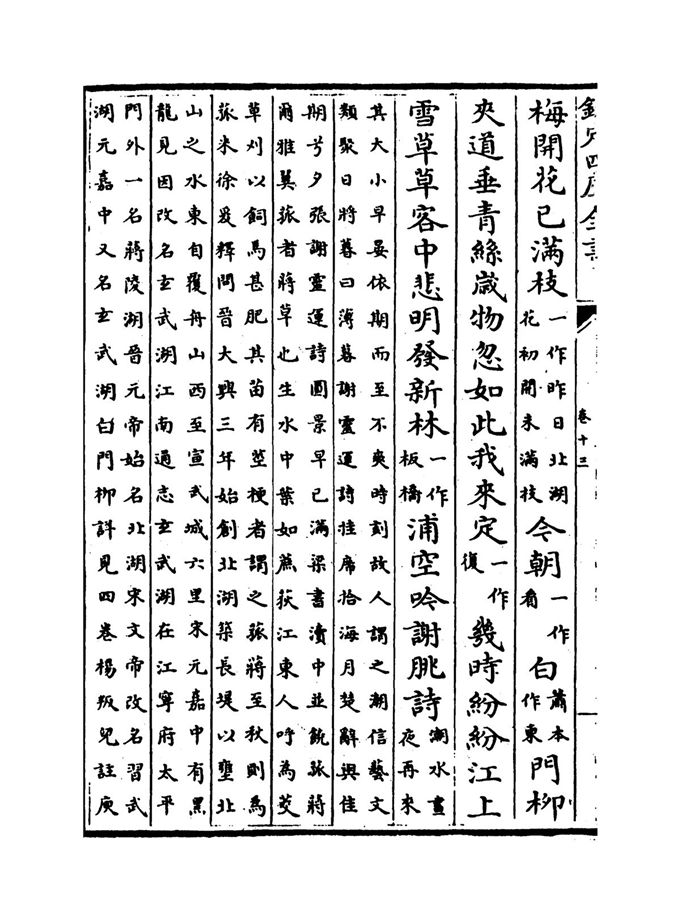 欽定四庫全書 卷十三
梅開花已滿枝一作昨日北湖花初開未滿枝今朝一作看白蕭本作東門柳
夾道垂青絲歲物忽如此我來定一作復幾時紛紛江上
雪草草客中悲明發新林一作板橋浦空吟謝朓詩潮水晝夜再來
其大小早晏依期而至不爽時刻故人謂之潮信藝文
類聚日將暮曰薄暮謝靈運詩挂席拾海月楚辭與佳
期兮夕張謝靈運詩圓景早已滿梁書瀆中並饒菰蔣
爾雅翼菰者蔣草也生水中葉如蔗荻江東人呼為茭
草刈以飼馬甚肥其苗有莖梗者謂之菰蔣至秋則為
菰米徐爰釋問晉大興三年始創北湖築長堤以壅北
山之水東自覆舟山西至宣武城六里宋元嘉中有黑
龍見因改名玄武湖江南通志玄武湖在江寧府太平
門外一名蔣陵湖晉元帝始名北湖宋文帝改名習武
湖元嘉中又名玄武湖白門柳詳見四卷楊叛兒註庾